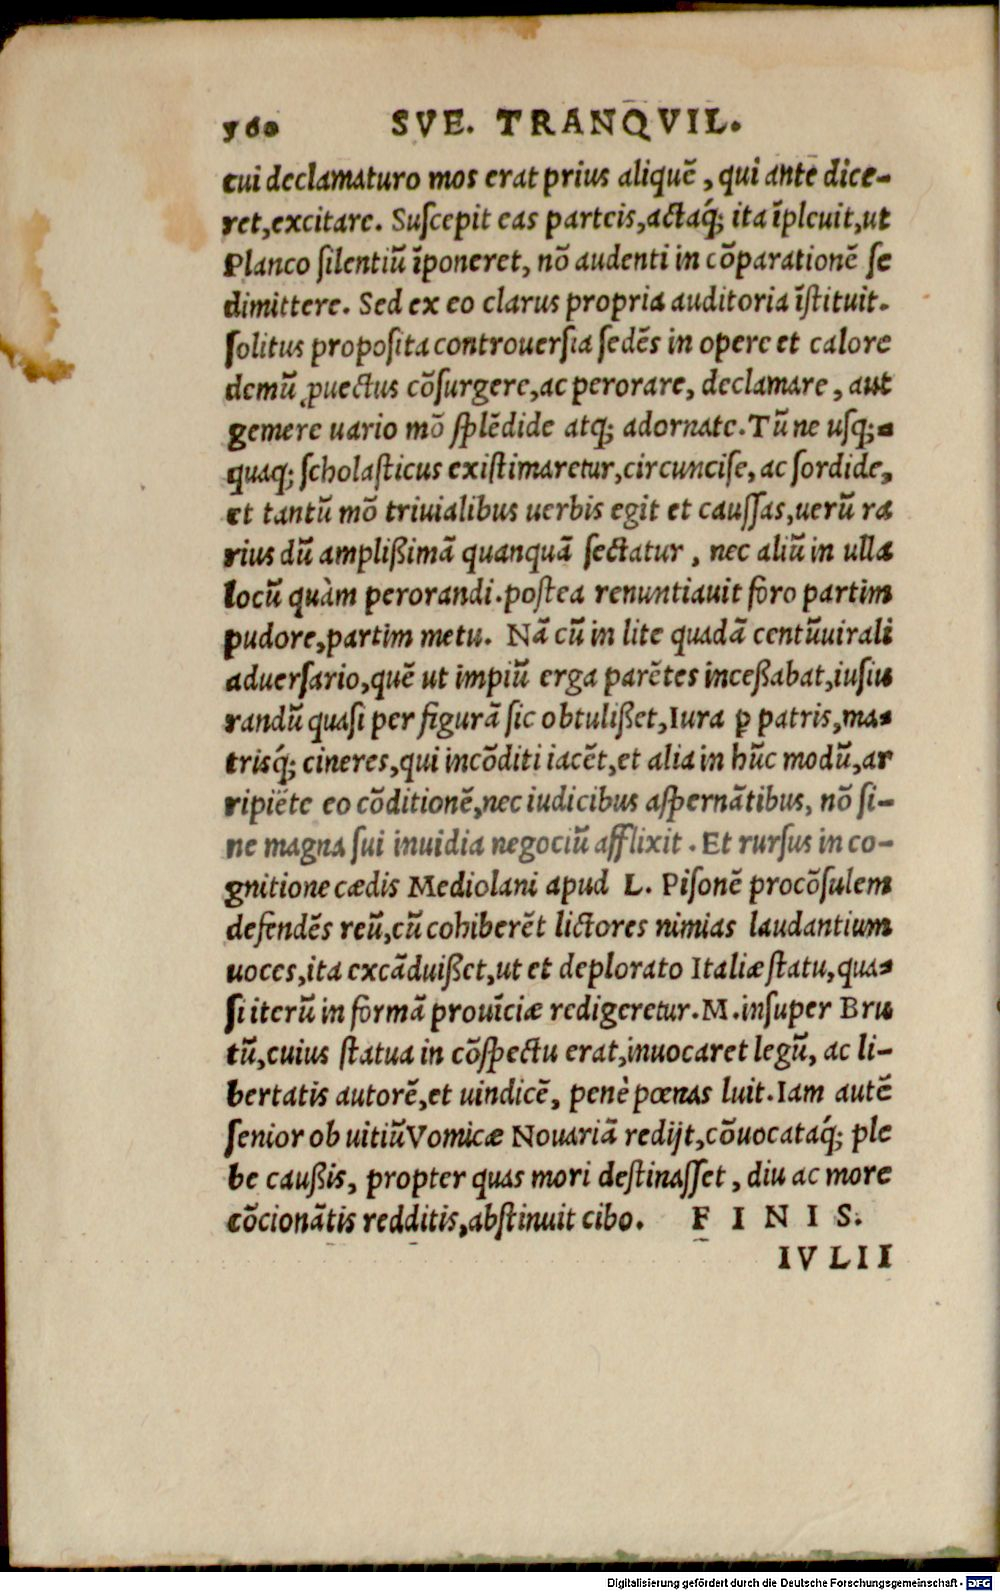 560 SVE. TRANQVIL.
cui declamaturo mos erat prius aliquē, qui ante dice-
ret, excitare. Suſcepit eas parteis, actaq́; ita īpleuit, ut
Planco ſilentiū īponeret, nō audenti in cōparationē ſe
dimittere. Sed ex eo clarus propria auditoria īſtituit.
ſolitus propoſita controuerſia ſedēs in opere et calore
demū ꝓuectus cōſurgere, ac perorare, declamare, aut
gemere uario mō ſplēdide atq; adornate. Tū ne uſq;-
quaq; ſcholaſticus exiſtimaretur, circunciſe, ac ſordide,
et tantū mō triuialibus uerbis egit et cauſſas, uerū ra
rius dū amplißimā quanquā ſectatur, nec aliū in ulla
locū quàm perorandi. poſtea renuntiauit foro partim
pudore, partim metu. Nā cū in lite quadā centūuirali
aduerſario, quē ut impiū erga parētes inceßabat, iuſiu
randū quaſi per figurā ſic obtulißet, Iura p̱ patris, ma-
trisq́; cineres, qui incōditi iacēt, et alia in hūc modū, ar
ripiēte eo cōditionē, nec iudicibus aſpernātibus, nō ſi-
ne magna ſui inuidia negociū afflixit. Et rurſus in co-
gnitione cædis Mediolani apud L. Piſonē procōſulem
defendēs reū, cū cohiberēt lictores nimias laudantium
uoces, ita excāduißet, ut et deplorato Italiæ ſtatu, qua-
ſi iterū in formā prouīciæ redigeretur. M. inſuper Bru
tū, cuius ſtatua in cōſpectu erat, inuocaret legū, ac li-
bertatis autorē, et uindicē, penè pœnas luit. Iam autē
ſenior ob uitiū Vomicæ Nouariā redijt, cōuocataq́; ple
be caußis, propter quas mori deſtinaſſet, diu ac more
cōcionātis redditis, abſtinuit cibo. F I N I S.
IVLII
Digitalisierung gefördert durch die Deutsche Forschungsgemeinschaft - DFG